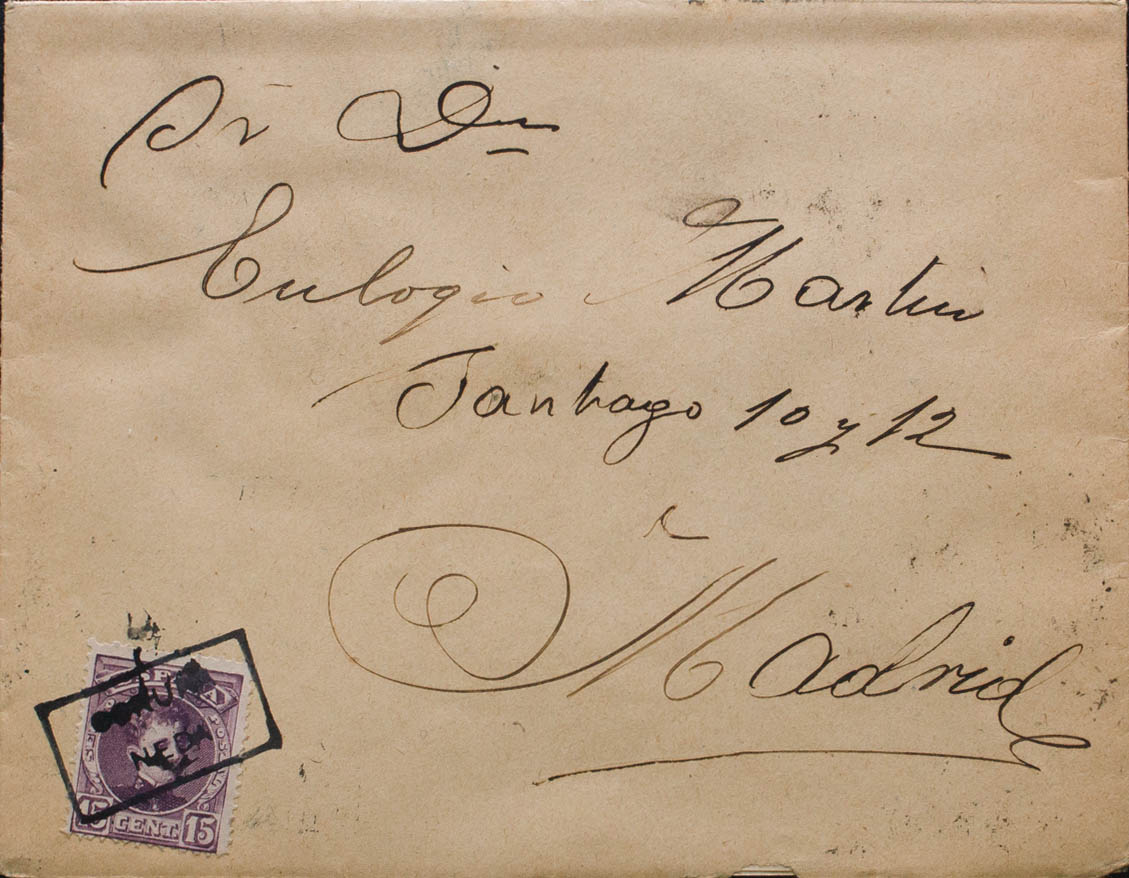 Sr Dn
Eulogio Martin
Santiago 10 y 12
Madrid
15 CENT. 15